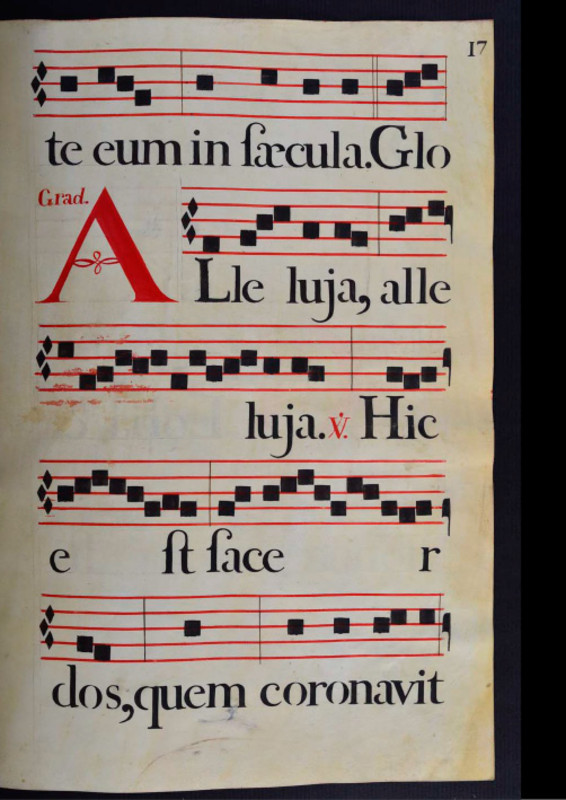 17
te eum in ſæcula. Glo
Grad.
ALle luja, alle
luja. ℣. Hic
e ſt ſace r
dos, quem coronavit